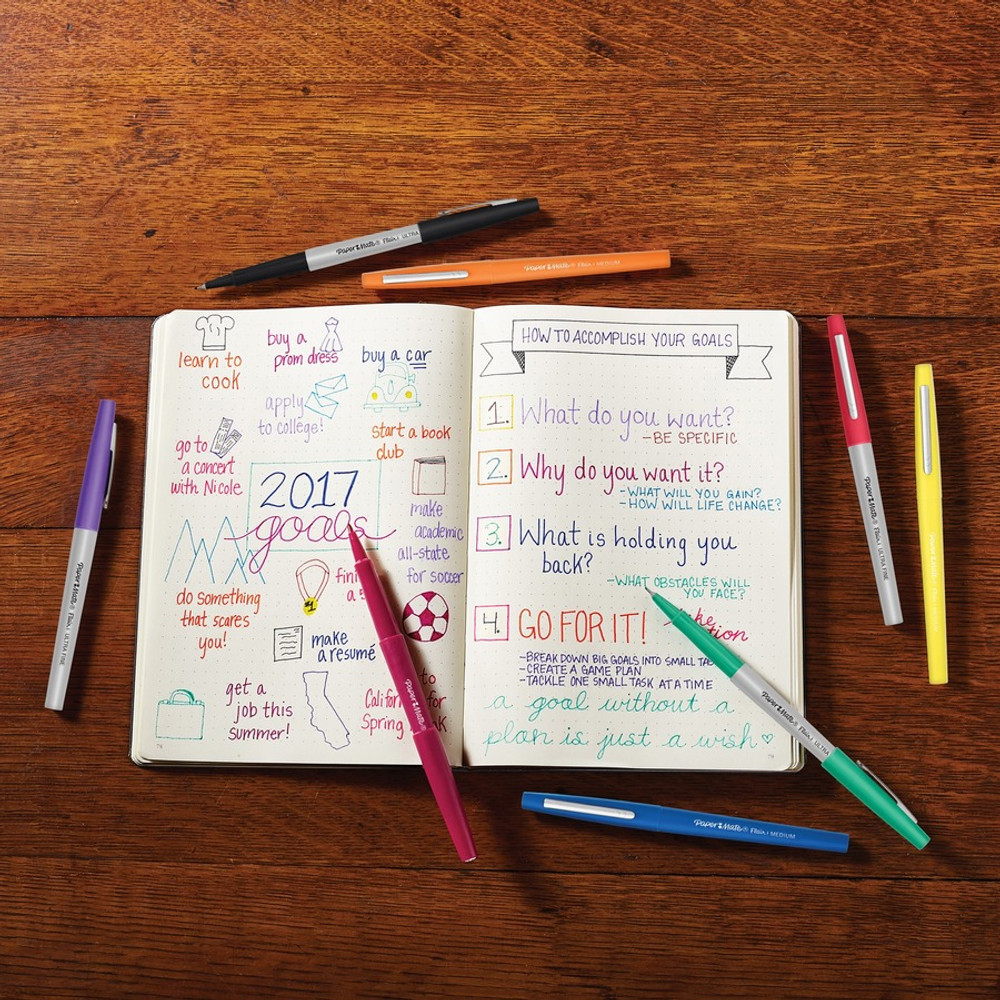 learn to
cook
buy a
prom dress
buy a car
apply
to college!
start a book
club
go to
a concert
with Nicole
2017
goals
make
academic
all-state
for soccer
do something
that scares
you!
#1
make
a resumé
get a
job this
summer!
to
for
Spring
HOW TO ACCOMPLISH YOUR GOALS
1. What do you want?
-BE SPECIFIC
2. Why do you want it?
-WHAT WILL YOU GAIN?
-HOW WILL LIFE CHANGE?
3. What is holding you
back?
-WHAT OBSTACLES WILL
YOU FACE?
4. GO FOR IT!
-BREAK DOWN BIG GOALS INTO SMALL
-CREATE A GAME PLAN
-TACKLE ONE SMALL TASK AT A TIME
a goal without a
plan is just a wish♡
Paper Mate® Flair. ULTRA
Paper Mate® Flair. MEDIUM
Paper Mate® Flair. ULTRA FINE
Paper Mate® Flair. ULTRA FINE
Paper Mate®
Paper Mate® Flair. ULTRA
Paper Mate® Flair. MEDIUM